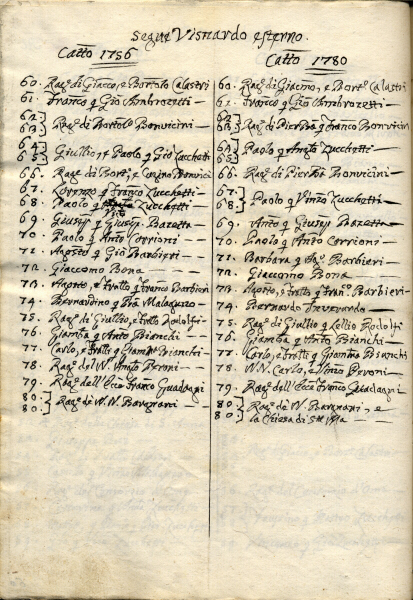 Segue Visnardo esterno.
Catto 1756
60. Rag.i di Giacco, e Bortolo Calastri
61. Franco q Gio Ambrozetti
62.
63. Rag.i di Bortolo Bonvicini
64.
65. Giullio, e Paolo q Gio Zucchetti
66. Rag.i di Borti, e Bonvici
67. Lorenzo q Franco Zucchetti
68. Paolo q Vico Zucchetti
69. Giusep q Giusep. Bazetta
70. Paolo q Anto Corrioni
71. Agosto q Gio Barbieri
72. Giaccomo Bona
73. Agosto, e fratto q Franco Barbieri
74. Bernardino q Malaguzo
75. Rag.i di Giullio, e fratto Rodolfi
76. Giamba q Anto Bianchi
77. Carlo, e fratti q Giamba Bianchi
78. Rag.i del N. Beroni
79. Rag.i dell' Ecc Franco Guadagni
80.
80. Rag.i de N.N. Bargnani
Catto 1780
60. Rag.i di Giacmo, e Borto Calastri
61. Franco q Gio Ambrozetti
62.
63. Rag.i di q Franco Bonvicini
64.
65. Paolo q Zucchetti
66. Rag.i di Bonvicini
67.
68. Paolo q Vinzo Zucchetti
69. Anto q Giusep Bazetta
70. Paolo q Anto Corrioni
71. Barbara q Barbieri
72. Giacomo Bona
73. Agosto, e fratto q Franco Barbieri
74. Bernardo Inverardo
75. Rag.i di Giullio q Lellio Rodolfi
76. Giamba q Anto Bianchi
77. Carlo, e fratti q Giamba Bianchi
78. N.N. Carlo, e Vinzo Peroni
79. Rag.i dell' Ecc Franco Guadagni
80. Rag.i de N. Bargnani, e
80. la Chiesa di